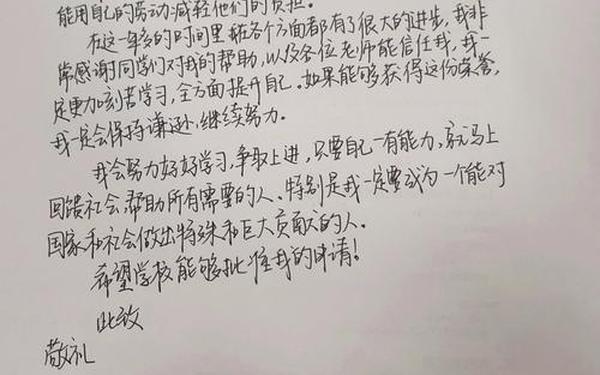 能用自己的劳动减轻他们的负担。
在这一年多的时间里我在各个方面都有了很大的进步，我非
常感谢同学们对我的帮助，以及各位老师能信任我，我一
定更加刻苦学习，全方面提升自己。如果能够获得这份荣誉，
我一定会保持谦逊，继续努力。
我会努力好好学习，争取上进，只要自己一有能力，就马上
回馈社会，帮助所有需要的人。特别是我一定要成为一个能对
国家和社会做出特殊和巨大贡献的人。
希望学校能够批准我的申请！
此致
敬礼